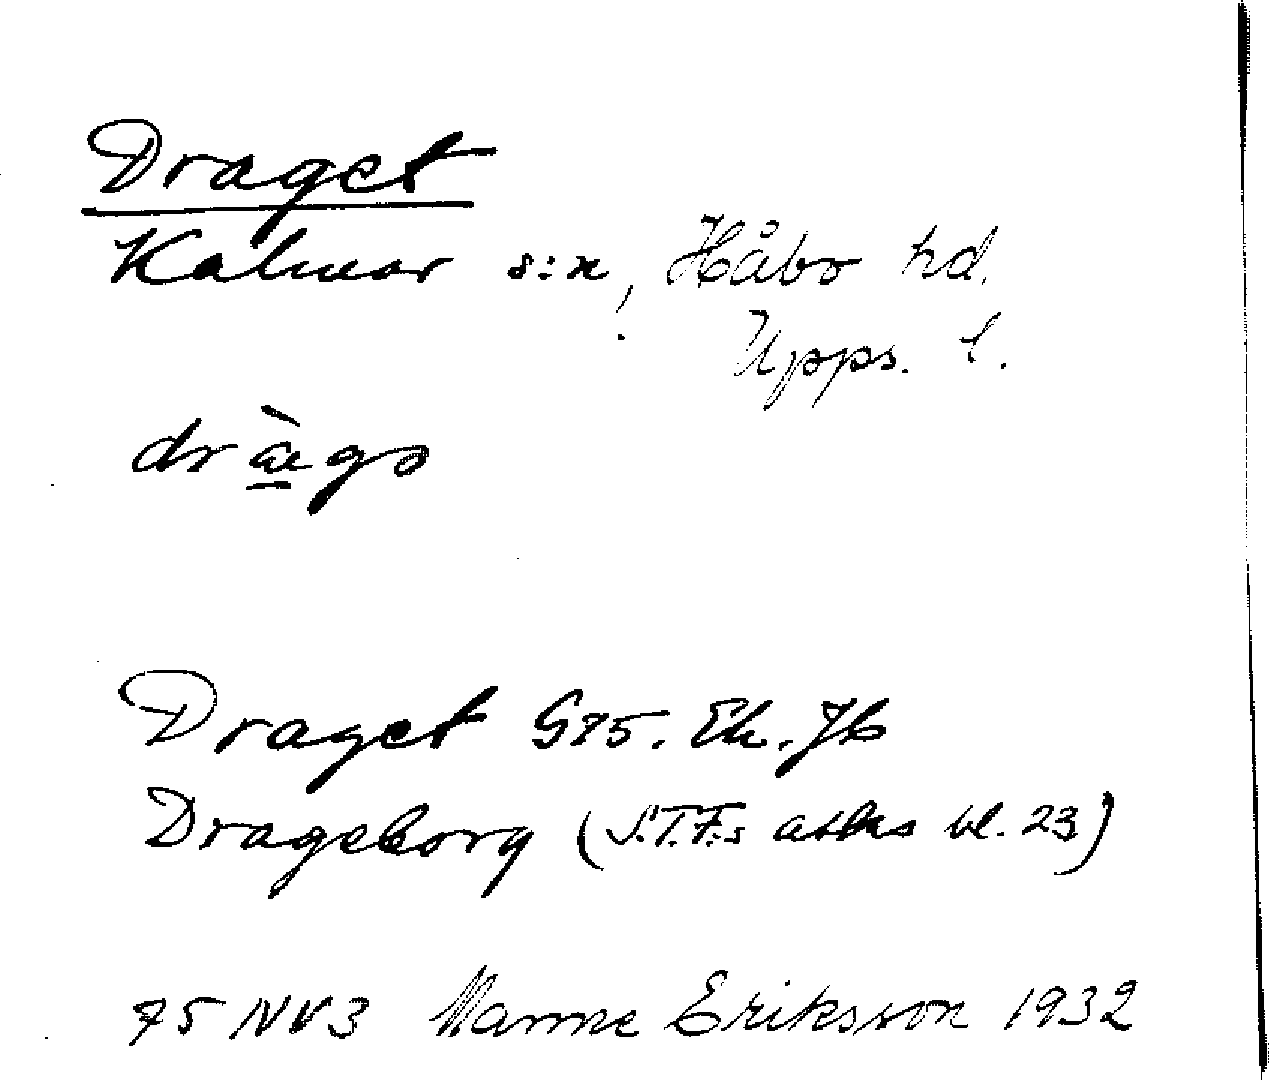 Draget
Kalmar s:n, Håbo hd.
Upps. l.
drægo
Draget G75. Ek. Jb
Drageborg (S.T.F:s atlas bl. 23)
75 NV3 Manne Eriksson 1932